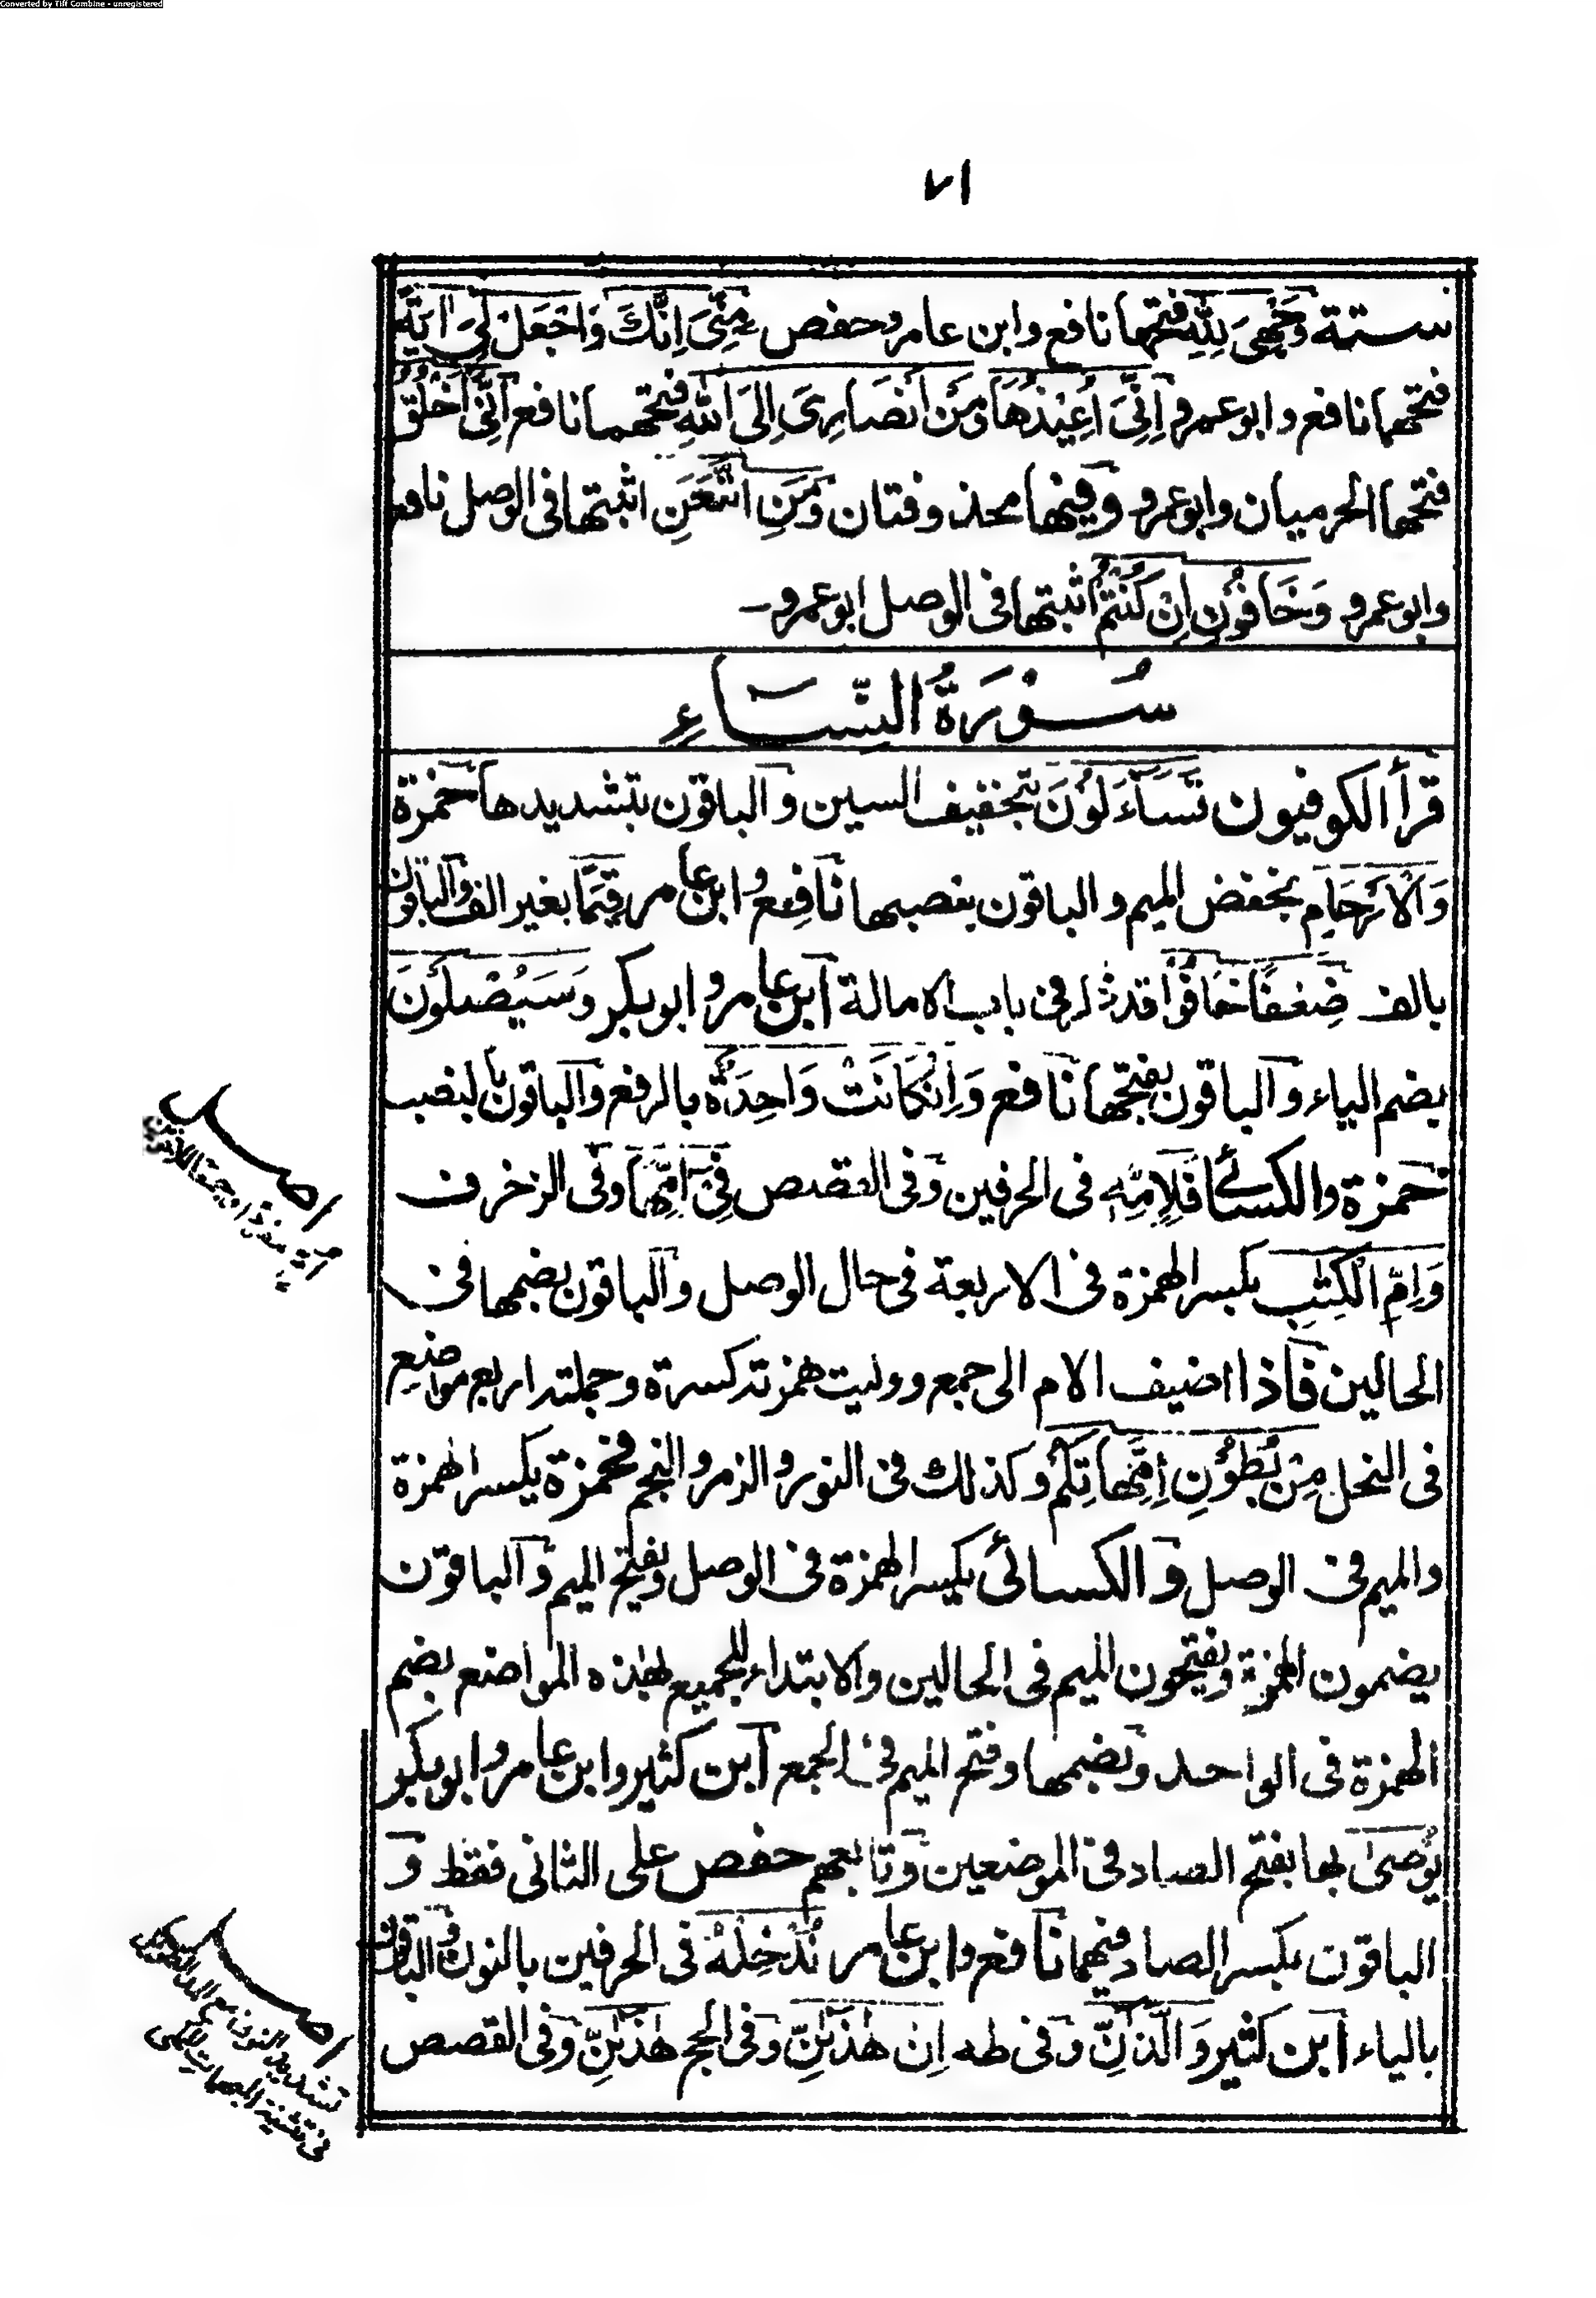 Converted by Tiff Combine - unregistered
٧١
ستة وَجْهِيَ لِلّٰهِ فتحها نافع وابن عامر وحفص مِنِّيَ اِنَّكَ وَاجْعَلْ لِيَ اٰيَةً
فتحهما نافع وابو عمرو اِنِّيَ اُعِيْذُهَا وَمَنْ اَنْصَارِيَ اِلَى اللهِ فتحهما نافع اَنِّيَ اَخْلُقُ
فتحها الحرميان وابو عمرو وفيها محذوفتان وَمَنِ اتَّبَعَنِ اثبتها فى الوصل نافع
وابو عمرو وَخَافُوْنِ اِنْ كُنْتُمْ اثبتها فى الوصل ابو عمرو۔
سُوْرَةُ النِّسَاءِ
قرأ الكوفيون تَسَاءَلُوْنَ بتخفيف السين والباقون بتشديدها حمزة
وَالْاَرْحَامِ بخفض الميم والباقون بنصبها نافع وابن عامر قِيَمًا بغير الف والباقون
بالف ضِعٰفًا خَافُوْا قد ذكر فى باب الامالة ابن عامر وابو بكر وَسَيُصْلَوْنَ
بضم الياء والباقون بفتحها نافع وَاِنْ كَانَتْ وَاحِدَةٌ بالرفع والباقون بالنصب
حمزة والكسائى فَلِاِمِّهِ فى الحرفين وفى القصص فِىْ اِمِّهَا وفى الزخرف
وَاِمِّ الْكِتٰبِ بكسر الهمزة فى الاربعة فى حال الوصل والباقون بضمها فى
الحالين فاذا اضيف الام الى جمع ووليت همزته كسرة وجملته اربع مواضع
فى النحل مِنْ بُطُوْنِ اِمِّهَاتِكُمْ وكذلك فى النور والزمر والنجم فحمزة يكسر الهمزة
والميم فى الوصل والكسائى يكسر الهمزة فى الوصل ويفتح الميم والباقون
يضمون الهمزة ويفتحون الميم فى الحالين والابتداء للجميع لهذه المواضع بضم
الهمزة فى الواحد وبضمها وفتح الميم فى الجمع ابن كثير وابن عامر وابو بكر
يُوْصٰى بها بفتح الصاد فى الموضعين وتابعهم حفص على الثانى فقط و
الباقون بكسر الصاد فيهما نافع وابن عامر نُدْخِلْهُ فى الحرفين بالنون والباقون
بالياء ابن كثير وَالَّذَانِّ وفى طه اِنْ هٰذَانِّ وفى الحج هٰذَانِّ وفى القصص
اصل
اصل
تشديد النون مع المد
فى تثنية المبهمات للمكى